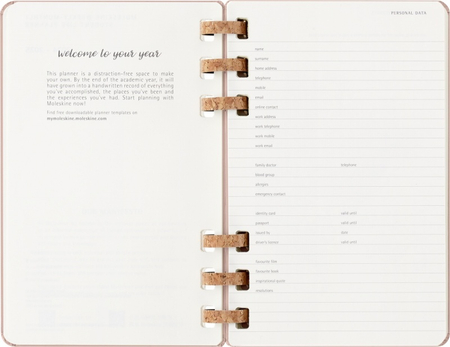 welcome to your year
This planner is a distraction-free space to make
your own. By the end of the academic year, it will
have grown into a handwritten record of everything
you've accomplished, the places you've been and
the experiences you've had. Start planning with
Moleskine now!
Find free downloadable planner templates on
mymoleskine.moleskine.com
PERSONAL DATA
name
surname
home address
telephone
mobile
email
online contact
work address
work telephone
work mobile
work email
family doctor telephone
blood group
allergies
emergency contact
identity card valid until
passport valid until
visa
driver's licence valid until
favourite film
favourite book
inspirational quote
resolutions